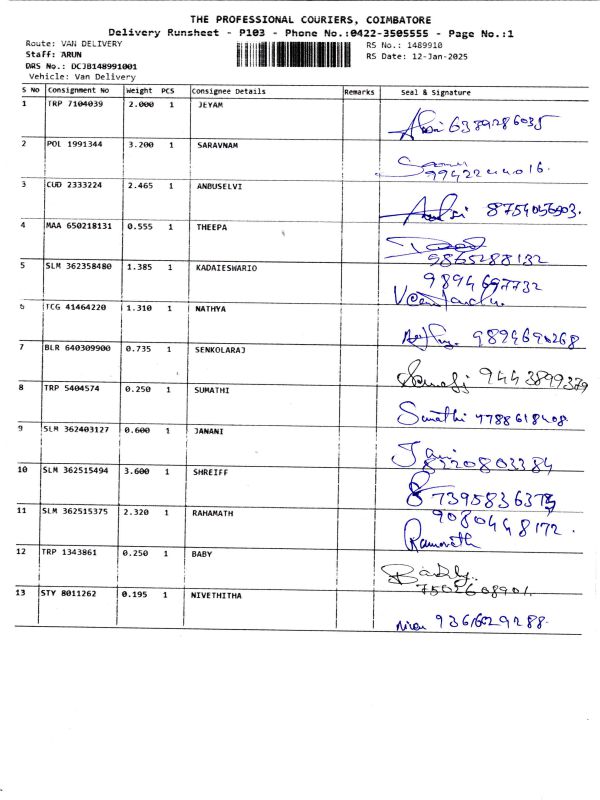 THE PROFESSIONAL COURIERS, COIMBATORE
Delivery Runsheet - P103 - Phone No.:0422-3505555 - Page No.:1
Route: VAN DELIVERY RS No.: 1489910
Staff: ARUN RS Date: 12-Jan-2025
DRS No.: DCJB148991001
Vehicle: Van Delivery
S No Consignment No Weight PCS Consignee Details Remarks Seal & Signature
1 TRP 7104039 2.000 1 JEYAM
6379286035
2 POL 1991344 3.200 1 SARAVNAM
9942244016.
3 CUD 2333224 2.465 1 ANBUSELVI
8754056903.
4 MAA 650218131 0.555 1 THEEPA
9865288132
5 SLM 362358480 1.385 1 KADAIESWARIO
9894697732
6 TCG 41464220 1.310 1 NATHYA
9894690268
7 BLR 640309900 0.735 1 SENKOLARAJ
9443899379
8 TRP 5404574 0.250 1 SUMATHI
Sumathi 9788618408.
9 SLM 362403127 0.600 1 JANANI
8220803384
10 SLM 362515494 3.600 1 SHREIFF
7395836373
11 SLM 362515375 2.320 1 RAHAMATH
9080448172.
12 TRP 1343861 0.250 1 BABY
Baby.
7502608901.
13 STY 8011262 0.195 1 NIVETHITHA
9361629288.